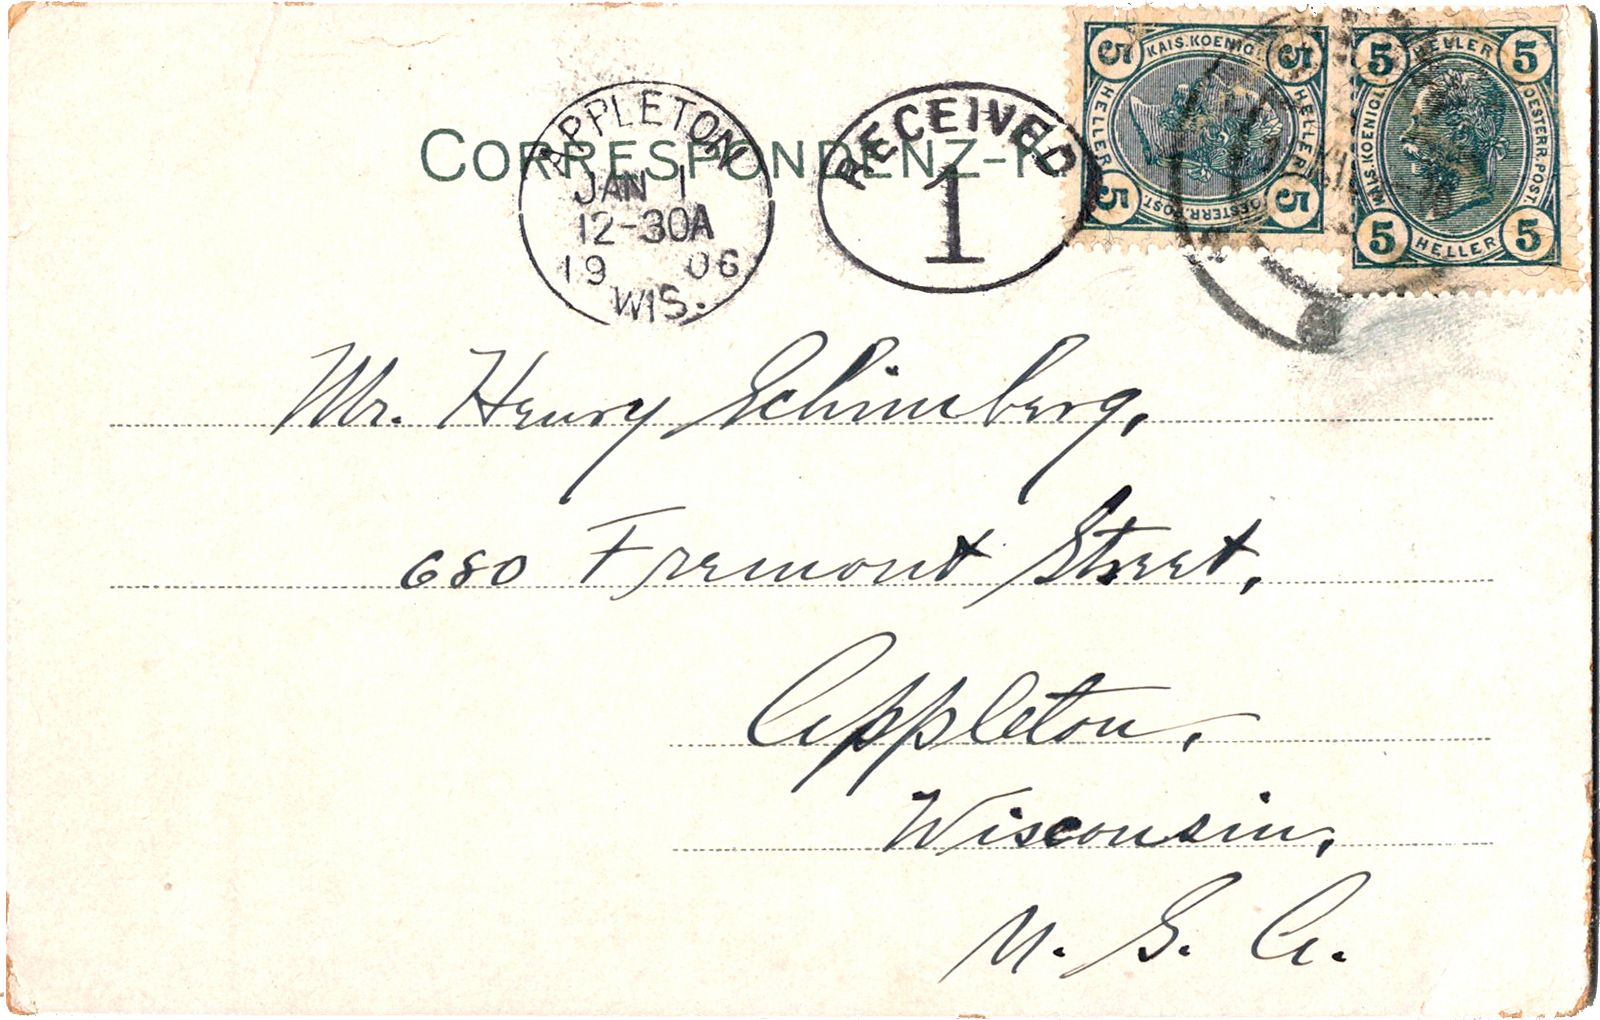 CORRESPONDENZ-K
APPLETON
JAN 1
12-30A
19 06
WIS.
RECEIVED
1
5 KAIS.KOENIG. 5
HELLER HELLER
5 OESTERR.POST. 5
5 HELLER 5
KAIS.KOENIG. OESTERR.POST.
5 HELLER 5
Mr. Henry Schimberg,
680 Fremont Street,
Appleton,
Wisconsin,
U. S. A.